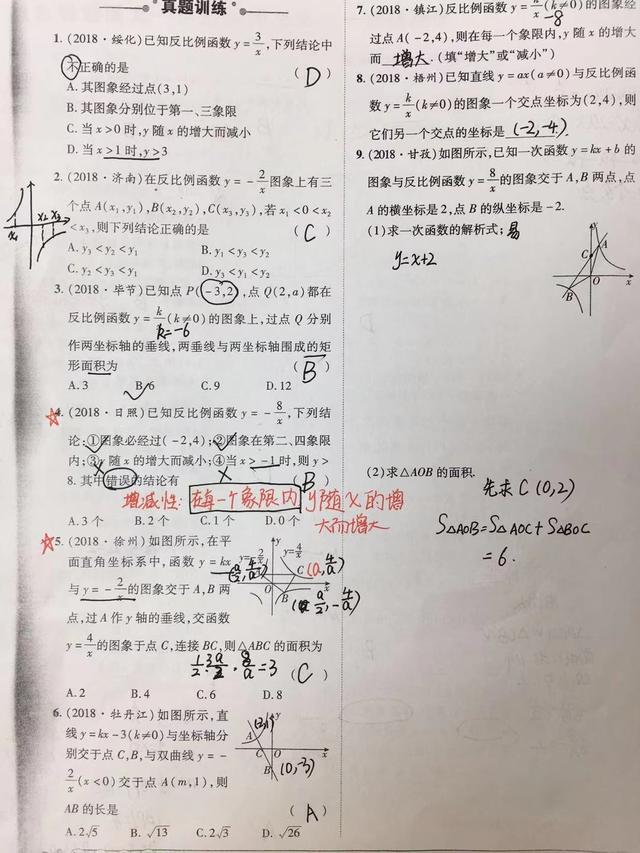 真题训练
1. (2018·绥化)已知反比例函数 y = 3/x ,下列结论中
不正确的是 ( D )
A. 其图象经过点(3,1)
B. 其图象分别位于第一、三象限
C. 当 x > 0 时, y 随 x 的增大而减小
D. 当 x > 1 时, y > 3
2. (2018·济南)在反比例函数 y = - 2/x 图象上有三
个点 A(x₁,y₁), B(x₂,y₂), C(x₃,y₃), 若 x₁ < 0 < x₂
< x₃, 则下列结论正确的是 ( C )
A. y₃ < y₂ < y₁ B. y₁ < y₃ < y₂
C. y₂ < y₃ < y₁ D. y₃ < y₁ < y₂
x₁ x₂ x₃
3. (2018·毕节)已知点 P(-3,2), 点 Q(2,a)都在
反比例函数 y = k/x (k≠0)的图象上,过点 Q 分别
k=-6
作两坐标轴的垂线,两垂线与两坐标轴围成的矩
形面积为 ( B )
A. 3 B. 6 C. 9 D. 12
4. (2018·日照)已知反比例函数 y = - 8/x ,下列结
论:①图象必经过(-2,4);②图象在第二、四象限
内;③y 随 x 的增大而减小;④当 x > -1 时,则 y >
8. 其中错误的结论有 ( B )
增减性: 在每一个象限内 y随x的增
大而增大
A. 3 个 B. 2 个 C. 1 个 D. 0 个
5. (2018·徐州)如图所示,在平
面直角坐标系中,函数 y = kx
与 y = - 2/x 的图象交于 A, B 两
点,过 A 作 y 轴的垂线,交函数
y = 4/x 的图象于点 C, 连接 BC, 则△ABC 的面积为
1/2 · 3a/2 · 8/a = 3 ( C )
A. 2 B. 4 C. 6 D. 8
y= 4/x
C (a, 4/a)
O B x
6. (2018·牡丹江)如图所示,直
线 y = kx - 3(k≠0)与坐标轴分
别交于点 C, B, 与双曲线 y = -
2/x (x < 0)交于点 A(m,1), 则
AB 的长是 ( A )
A. 2√5 B. √13 C. 2√3 D. √26
y
A
C O x
B (0,-3)
7. (2018·镇江)反比例函数 y = k/x (k≠0)的图象经
-8
过点 A(-2,4), 则在每一个象限内, y 随 x 的增大
而 增大. (填“增大”或“减小”)
8. (2018·梧州)已知直线 y = ax(a≠0)与反比例函
数 y = k/x (k≠0)的图象一个交点坐标为(2,4), 则
它们另一个交点的坐标是 (-2,-4).
9. (2018·甘孜)如图所示,已知一次函数 y = kx + b 的
图象与反比例函数 y = 8/x 的图象交于 A, B 两点, 点
A 的横坐标是 2, 点 B 的纵坐标是 -2.
(1)求一次函数的解析式; 易
y=x+2
y
A
C
O x
B
(2)求△AOB 的面积.
先求 C (0,2)
S△AOB = S△AOC + S△BOC
= 6.